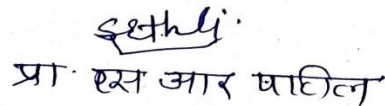 प्रा. एस आर पाटील